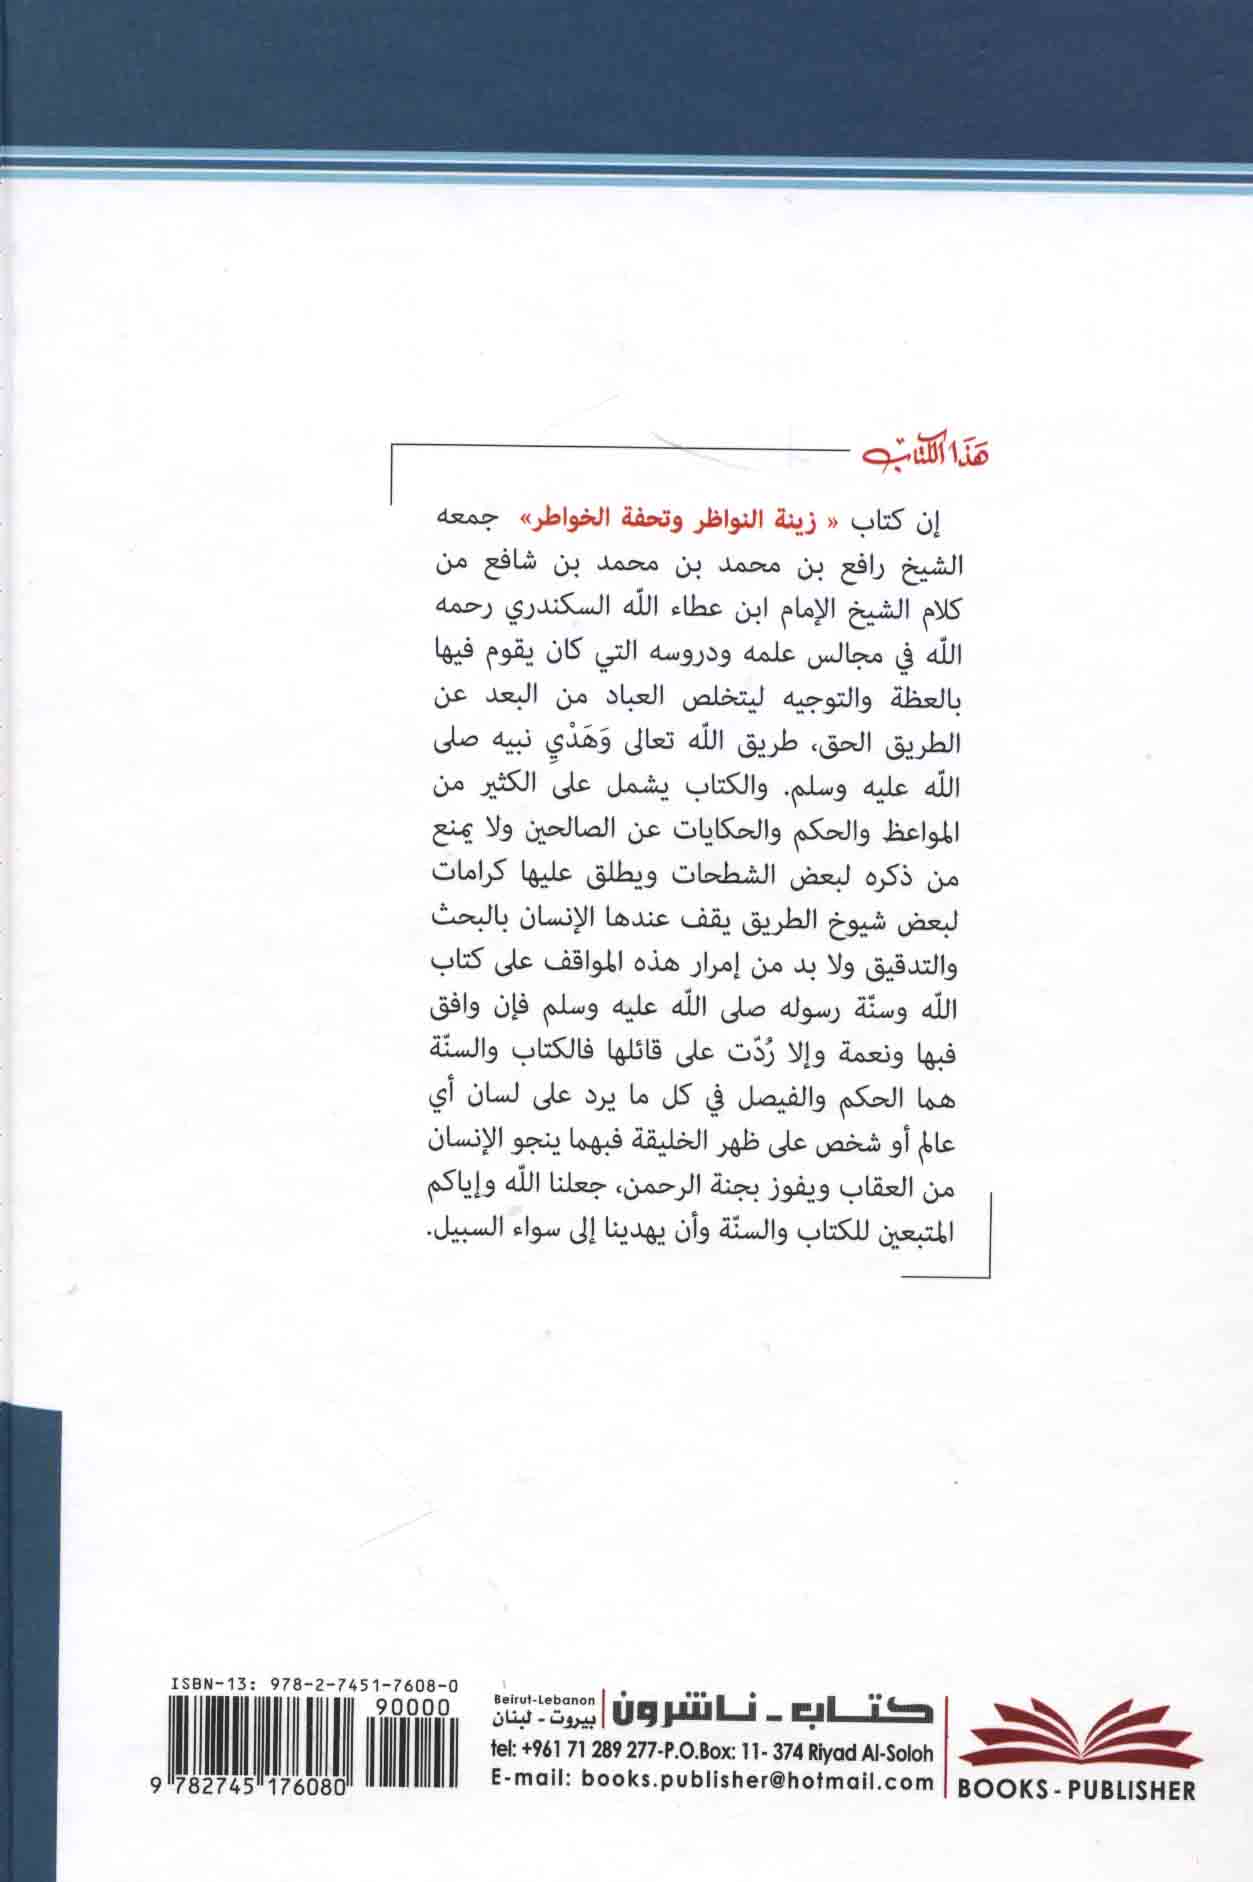 هَذَا الكِتَابُ
إن كتاب « زينة النواظر وتحفة الخواطر» جمعه
الشيخ رافع بن محمد بن محمد بن شافع من
كلام الشيخ الإمام ابن عطاء اللّه السكندري رحمه
اللّه في مجالس علمه ودروسه التي كان يقوم فيها
بالعظة والتوجيه ليتخلص العباد من البعد عن
الطريق الحق، طريق اللّه تعالى وَهَدْيِ نبيه صلى
اللّه عليه وسلم. والكتاب يشمل على الكثير من
المواعظ والحكم والحكايات عن الصالحين ولا يمنع
من ذكره لبعض الشطحات ويطلق عليها كرامات
لبعض شيوخ الطريق يقف عندها الإنسان بالبحث
والتدقيق ولا بد من إمرار هذه المواقف على كتاب
اللّه وسنّة رسوله صلى اللّه عليه وسلم فإن وافق
فبها ونعمة وإلا رُدّت على قائلها فالكتاب والسنّة
هما الحكم والفيصل في كل ما يرد على لسان أي
عالم أو شخص على ظهر الخليقة فبهما ينجو الإنسان
من العقاب ويفوز بجنة الرحمن، جعلنا اللّه وإياكم
المتبعين للكتاب والسنّة وأن يهدينا إلى سواء السبيل.
ISBN-13: 978-2-7451-7608-0
90000
9 782745 176080
كتاب - ناشرون
Beirut-Lebanon
بيروت - لبنان
tel: +961 71 289 277-P.O.Box: 11- 374 Riyad Al-Soloh
E-mail: books.publisher@hotmail.com
BOOKS - PUBLISHER